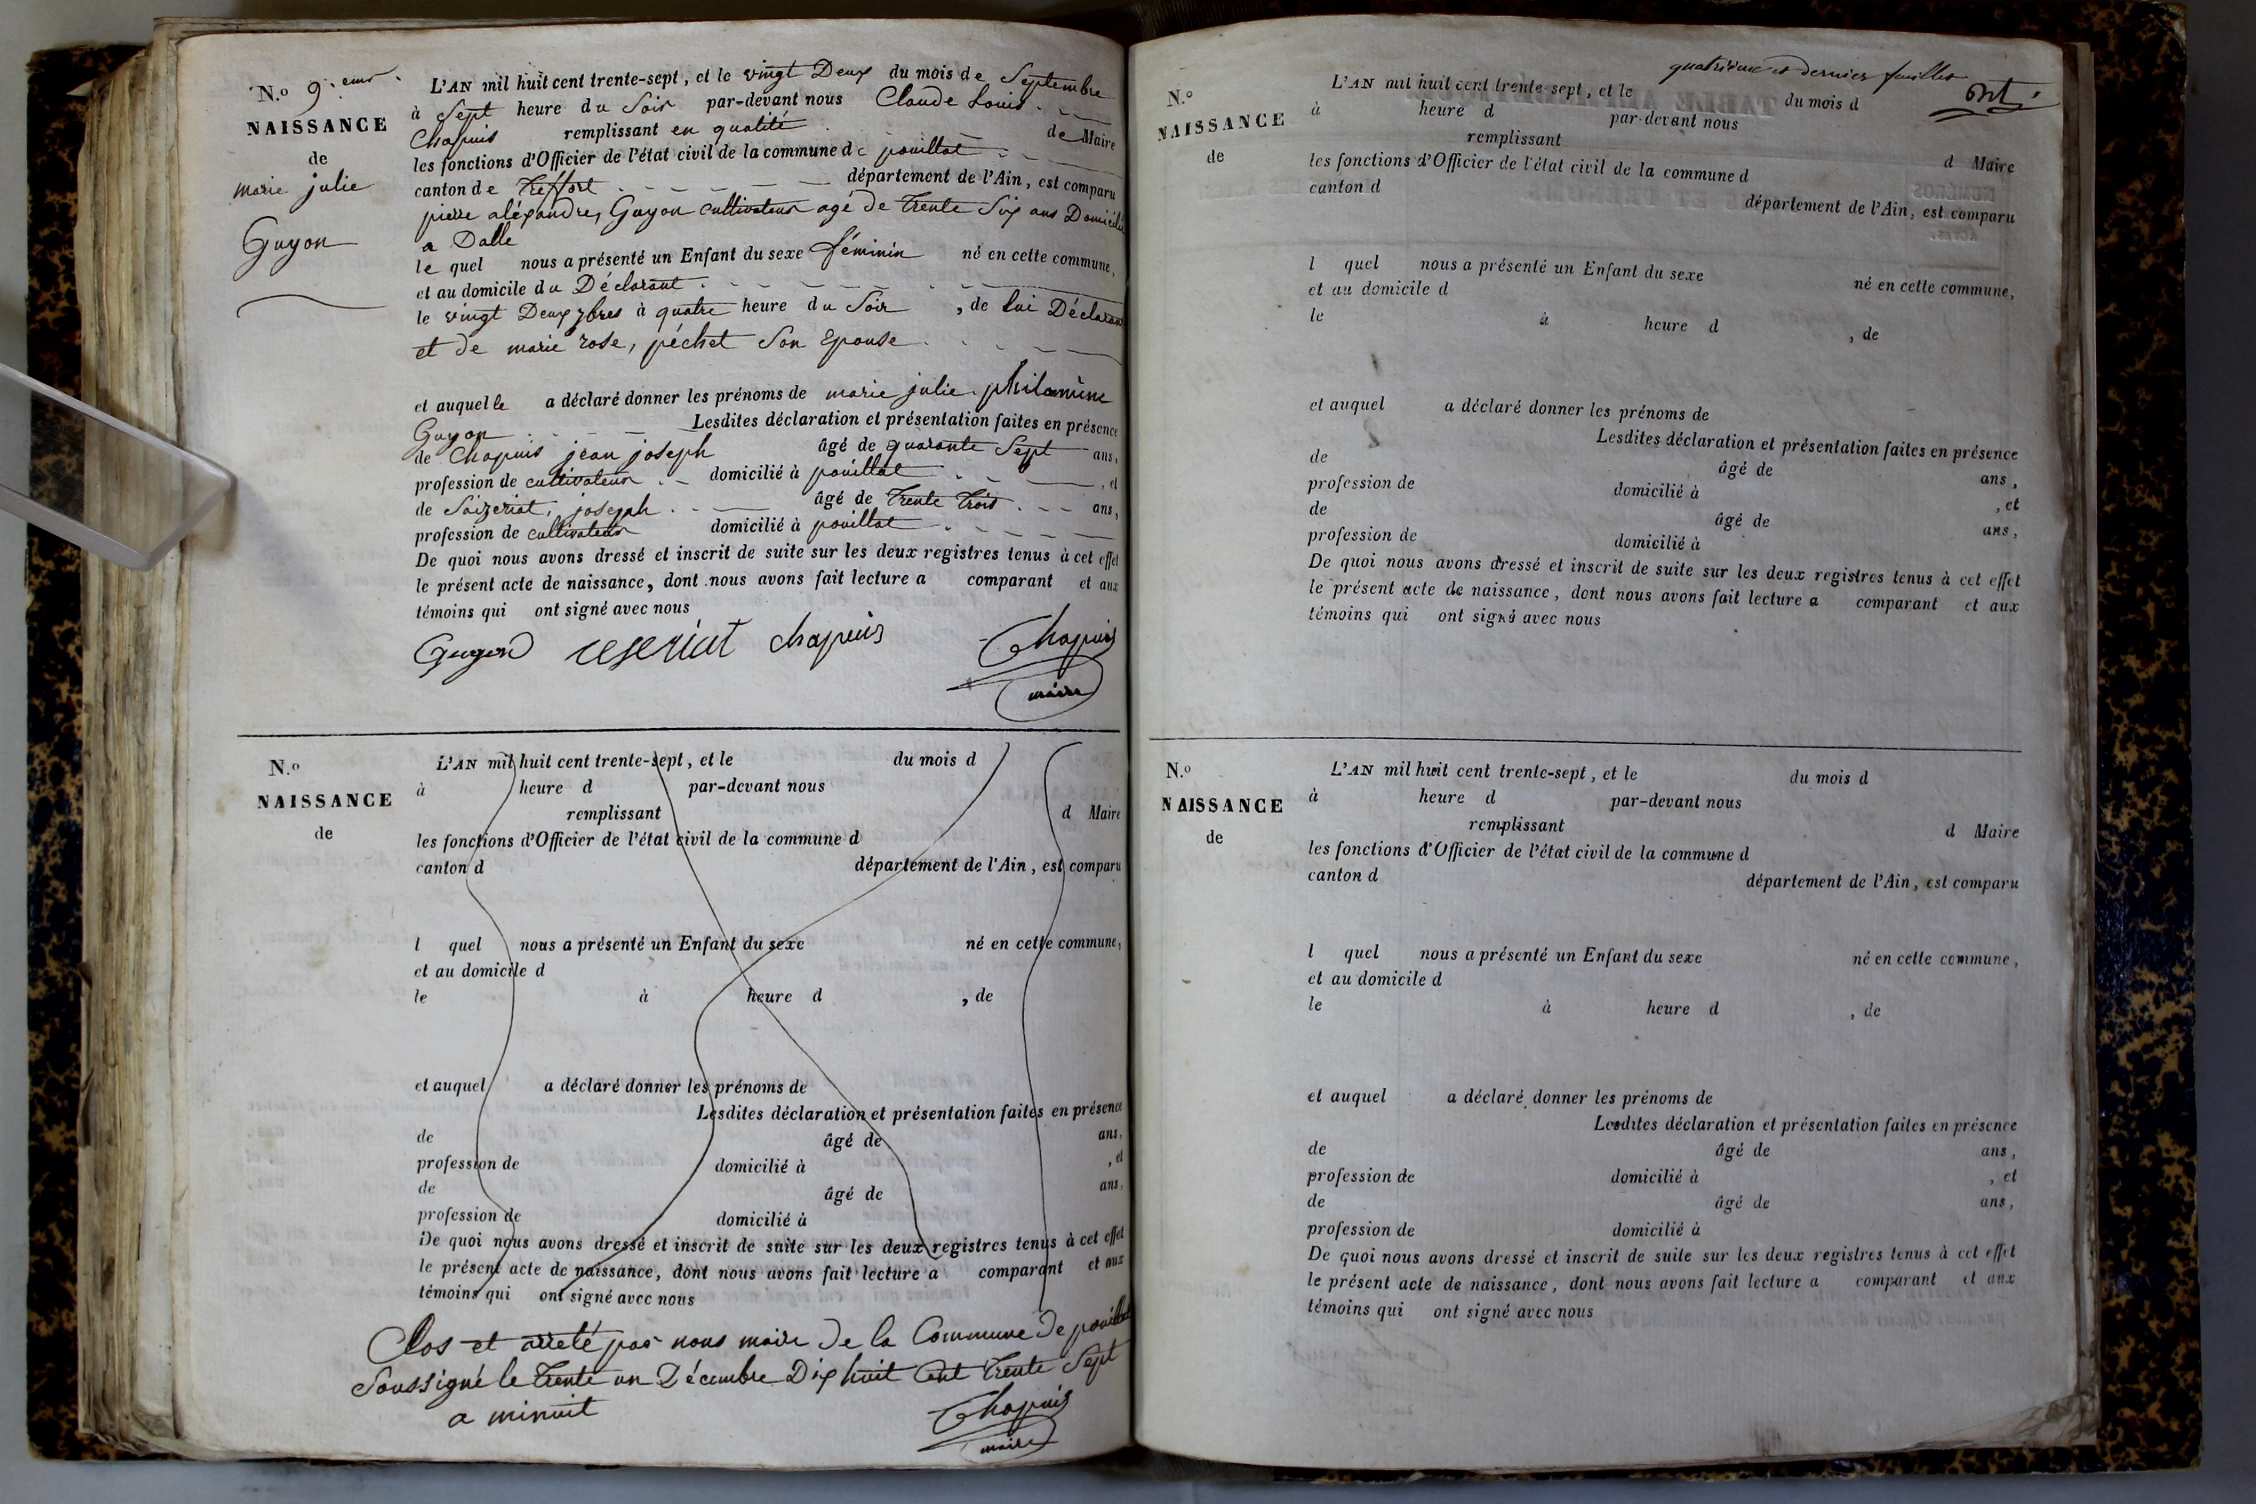 N.º 9.eme
NAISSANCE
de
marie julie
Guyon
L'AN mil huit cent trente-sept, et le vingt Deux du mois de Septembre
à Sept heure du Soir par-devant nous Claude Louis
Chapuis remplissant en qualité de Maire
les fonctions d'Officier de l'état civil de la commune de pouillat
canton de Treffort département de l'Ain, est comparu
pierre aléxandre, Guyon cultivateur agé de trente Six ans Domicilié
a Dalle
le quel nous a présenté un Enfant du sexe féminin né en cette commune,
et au domicile du Déclarant
le vingt Deux 7bres à quatre heure du Soir , de lui Déclarant
et de marie rose, péchet Son Epouse
et auquel le a déclaré donner les prénoms de marie julie philomène
Guyon Lesdites déclaration et présentation faites en présence
de Chapuis jean joseph âgé de quarante Sept ans,
profession de cultivateur domicilié à pouillat , et
de Saizeriat, joseph âgé de trente trois ans,
profession de cultivateur domicilié à pouillat
De quoi nous avons dressé et inscrit de suite sur les deux registres tenus à cet effet
le présent acte de naissance, dont nous avons fait lecture a comparant et aux
témoins qui ont signé avec nous
Guyon ceseriat chapuis Chapuis
maire
N.º
NAISSANCE
de
L'AN mil huit cent trente-sept, et le du mois d
à heure d par-devant nous
remplissant d Maire
les fonctions d'Officier de l'état civil de la commune d
canton d département de l'Ain, est comparu
l quel nous a présenté un Enfant du sexe né en cette commune,
et au domicile d
le à heure d , de
et auquel a déclaré donner les prénoms de
Lesdites déclaration et présentation faites en présence
de âgé de ans,
profession de domicilié à , et
de âgé de ans,
profession de domicilié à
De quoi nous avons dressé et inscrit de suite sur les deux registres tenus à cet effet
le présent acte de naissance, dont nous avons fait lecture a comparant et aux
témoins qui ont signé avec nous
Clos et arreté par nous maire de la Commune de pouillat
Soussigné le trente un Décembre Dix huit Cent trente Sept
a minuit
Chapuis
maire
quatrième et dernier feuillet
N.º
NAISSANCE
de
L'AN mil huit cent trente-sept, et le du mois d
à heure d par-devant nous
remplissant d Maire
les fonctions d'Officier de l'état civil de la commune d
canton d département de l'Ain, est comparu
l quel nous a présenté un Enfant du sexe né en cette commune,
et au domicile d
le à heure d , de
et auquel a déclaré donner les prénoms de
Lesdites déclaration et présentation faites en présence
de âgé de ans,
profession de domicilié à , et
de âgé de ans,
profession de domicilié à
De quoi nous avons dressé et inscrit de suite sur les deux registres tenus à cet effet
le présent acte de naissance, dont nous avons fait lecture a comparant et aux
témoins qui ont signé avec nous
N.º
NAISSANCE
de
L'AN mil huit cent trente-sept, et le du mois d
à heure d par-devant nous
remplissant d Maire
les fonctions d'Officier de l'état civil de la commune d
canton d département de l'Ain, est comparu
l quel nous a présenté un Enfant du sexe né en cette commune,
et au domicile d
le à heure d , de
et auquel a déclaré donner les prénoms de
Lesdites déclaration et présentation faites en présence
de âgé de ans,
profession de domicilié à , et
de âgé de ans,
profession de domicilié à
De quoi nous avons dressé et inscrit de suite sur les deux registres tenus à cet effet
le présent acte de naissance, dont nous avons fait lecture a comparant et aux
témoins qui ont signé avec nous